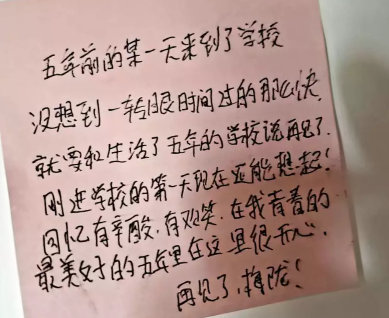 五年前的某一天来到了学校
没想到一转眼时间过的那么快
就要和生活了五年的学校说再见了.
刚进学校的第一天现在还能想起!
回忆有辛酸,有欢笑.在我青春的
最美好的五年里在这里很开心.
再见了,梅陇!